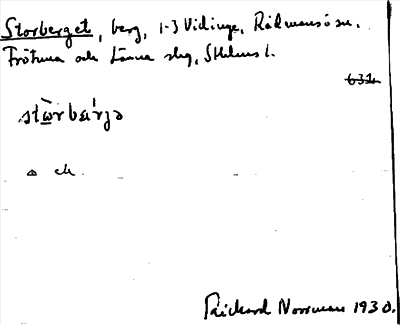 Storberget, berg, 1-3 Vidinge, Rådmansö sn.
Frötuna och Länna slg, Sthlms l.
631.
stòrbár̀jə
Rickard Norrman 1930.